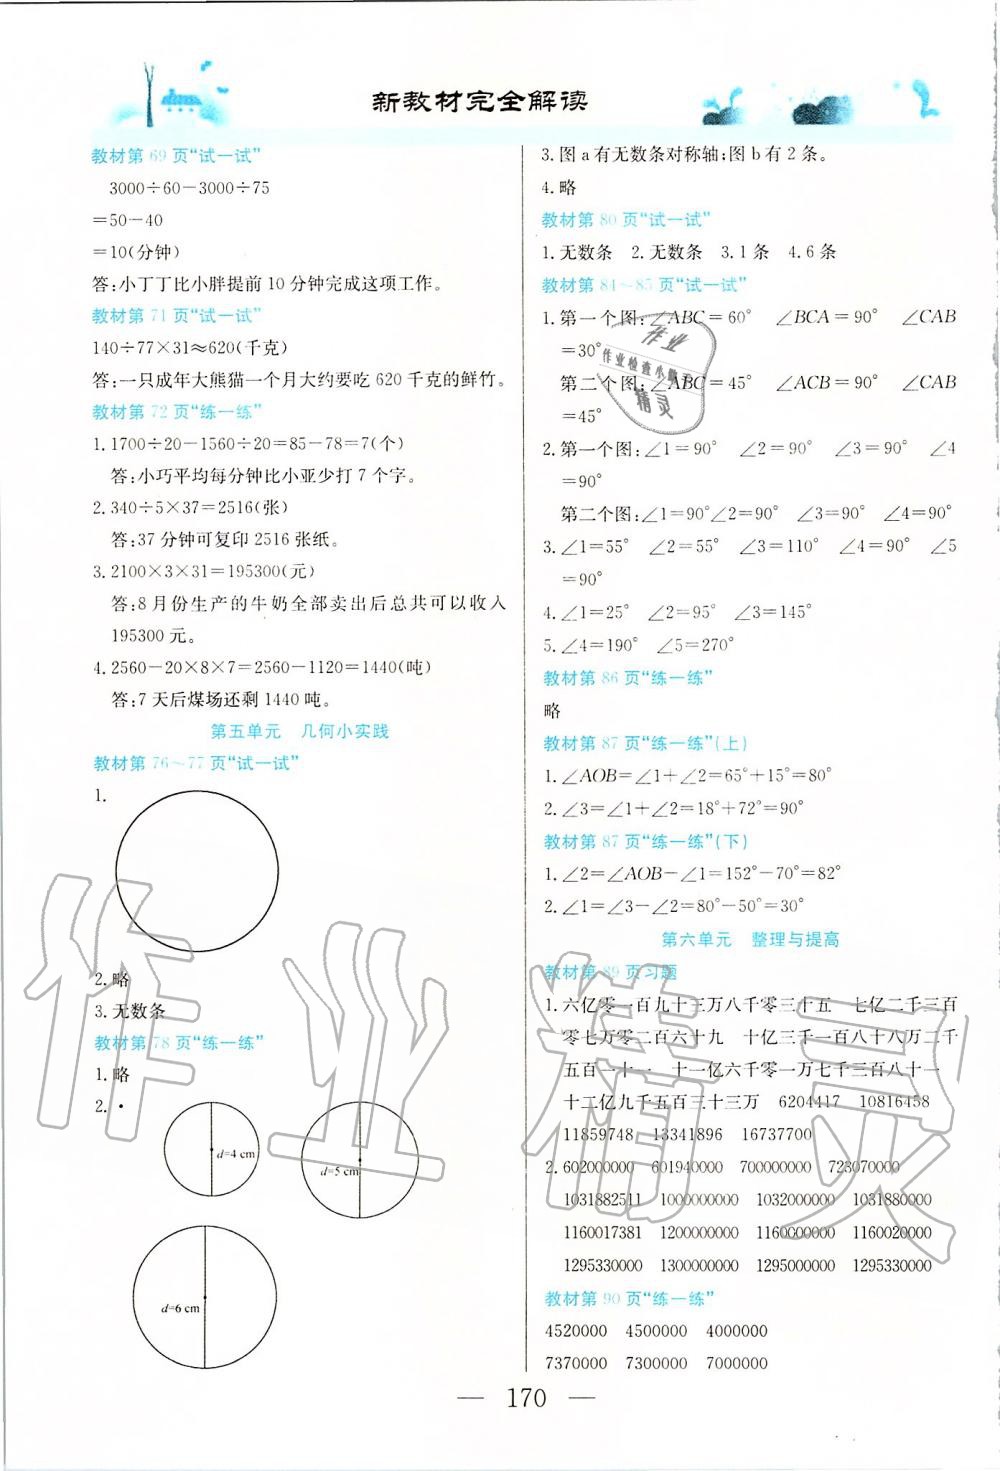 新教材完全解读
教材第69页“试一试”
3000÷60-3000÷75
=50-40
=10(分钟)
答:小丁丁比小胖提前10分钟完成这项工作。
教材第71页“试一试”
140÷77×31≈620(千克)
答:一只成年大熊猫一个月大约要吃620千克的鲜竹。
教材第72页“练一练”
1.1700÷20-1560÷20=85-78=7(个)
答:小巧平均每分钟比小亚少打7个字。
2.340÷5×37=2516(张)
答:37分钟可复印2516张纸。
3.2100×3×31=195300(元)
答:8月份生产的牛奶全部卖出后总共可以收入
195300元。
4.2560-20×8×7=2560-1120=1440(吨)
答:7天后煤场还剩1440吨。
第五单元 几何小实践
教材第76~77页“试一试”
1.
2.略
3.无数条
教材第78页“练一练”
1.略
2.·
d=4 cm
d=5 cm
d=6 cm
3.图a有无数条对称轴;图b有2条。
4.略
教材第80页“试一试”
1.无数条 2.无数条 3.1条 4.6条
教材第84~85页“试一试”
1.第一个图:∠ABC=60° ∠BCA=90° ∠CAB
=30°
第二个图:∠ABC=45° ∠ACB=90° ∠CAB
=45°
2.第一个图:∠1=90° ∠2=90° ∠3=90° ∠4
=90°
第二个图:∠1=90°∠2=90° ∠3=90° ∠4=90°
3.∠1=55° ∠2=55° ∠3=110° ∠4=90° ∠5
=90°
4.∠1=25° ∠2=95° ∠3=145°
5.∠4=190° ∠5=270°
教材第86页“练一练”
略
教材第87页“练一练”(上)
1.∠AOB=∠1+∠2=65°+15°=80°
2.∠3=∠1+∠2=18°+72°=90°
教材第87页“练一练”(下)
1.∠2=∠AOB-∠1=152°-70°=82°
2.∠1=∠3-∠2=80°-50°=30°
第六单元 整理与提高
教材第89页习题
1.六亿零一百九十三万八千零三十五 七亿二千三百
零七万零二百六十九 十亿三千一百八十八万二千
五百一十一 十一亿六千零一万七千三百八十一
十二亿九千五百三十三万 6204417 10816458
11859748 13341896 16737700
2.602000000 601940000 700000000 723070000
1031882511 1000000000 1032000000 1031880000
1160017381 1200000000 1160000000 1160020000
1295330000 1300000000 1295000000 1295330000
教材第90页“练一练”
4520000 4500000 4000000
7370000 7300000 7000000
— 170 —
作业精灵
作业
作业检查小助手
精灵